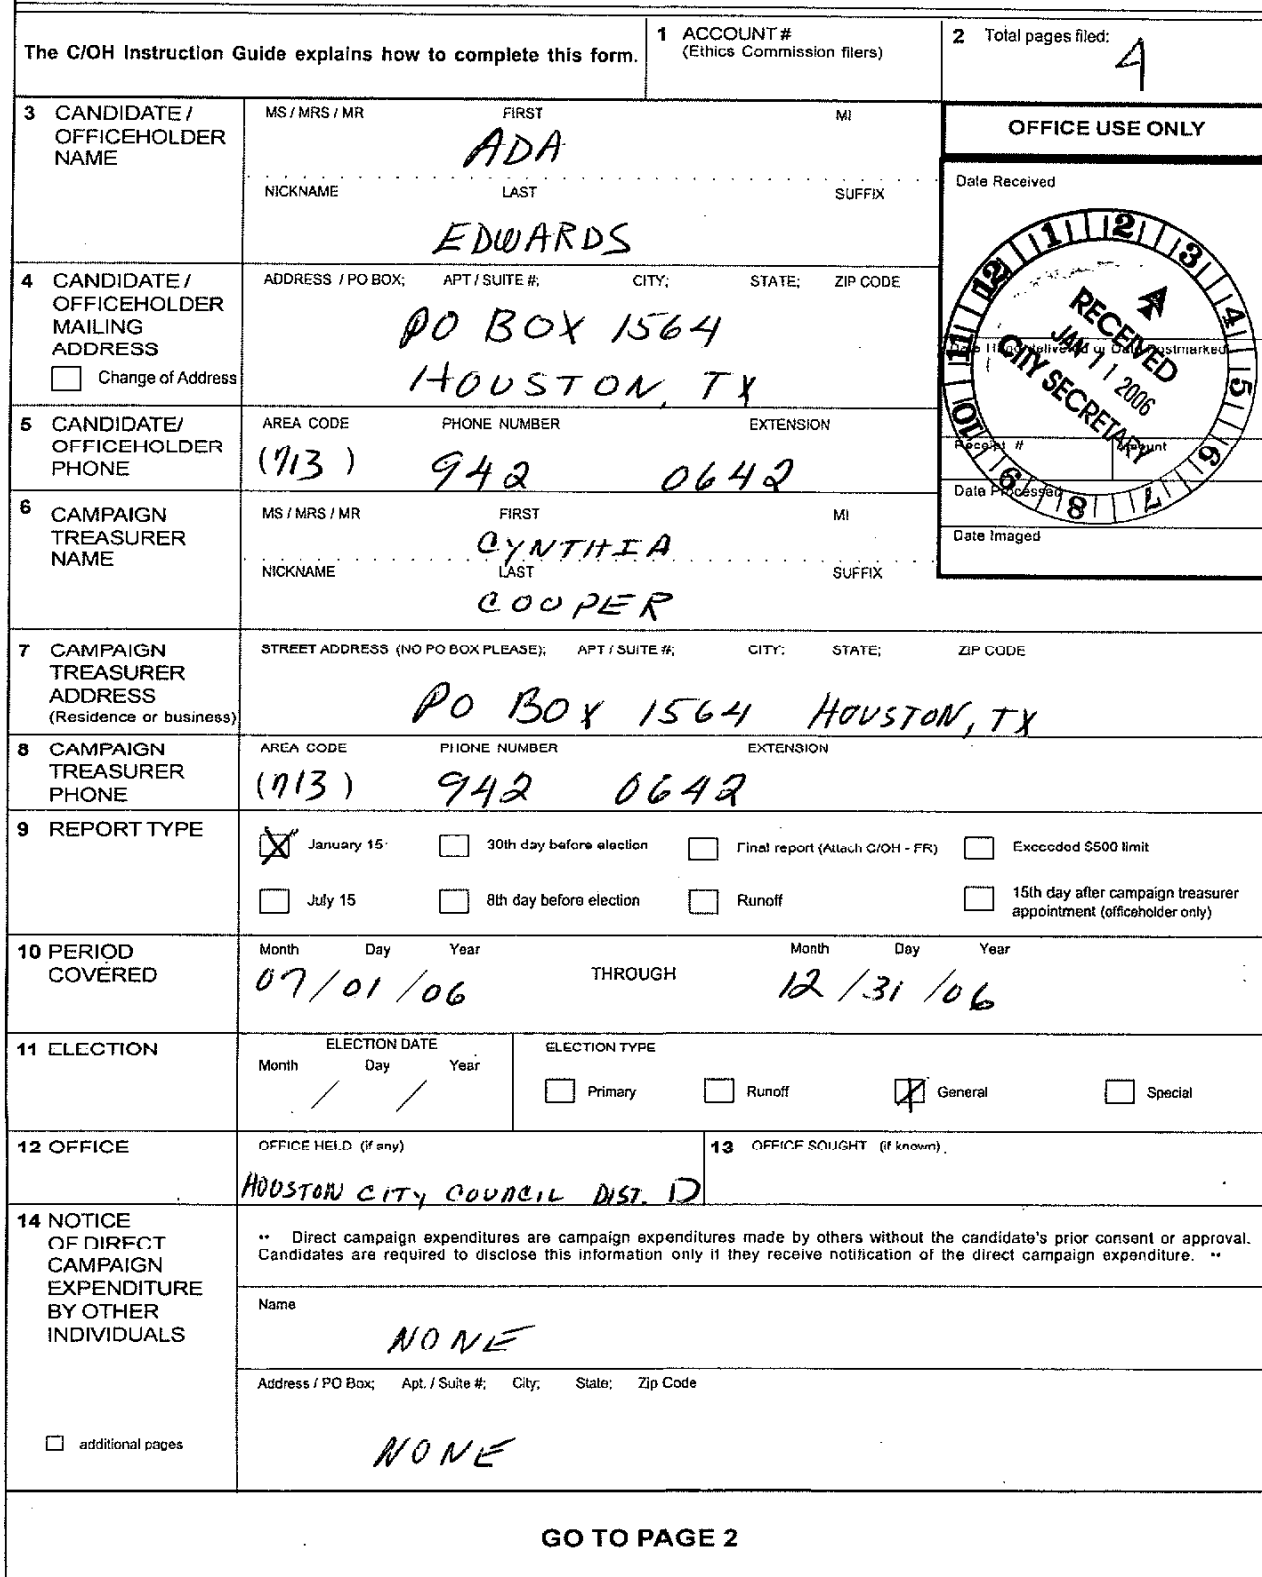 The C/OH Instruction Guide explains how to complete this form.
1 ACCOUNT #
(Ethics Commission filers)
2 Total pages filed:
4
3 CANDIDATE /
OFFICEHOLDER
NAME
MS / MRS / MR FIRST MI
ADA
NICKNAME LAST SUFFIX
EDWARDS
OFFICE USE ONLY
Date Received
12 1 2 3 4 5 6 7 8 9 10 11
RECEIVED
JAN 11 2006
CITY SECRETARY
Date Hand-delivered or Date Postmarked
Receipt # Amount
Date Processed
Date Imaged
4 CANDIDATE /
OFFICEHOLDER
MAILING
ADDRESS
Change of Address
ADDRESS / PO BOX; APT / SUITE #; CITY; STATE; ZIP CODE
PO BOX 1564
HOUSTON, TX
5 CANDIDATE/
OFFICEHOLDER
PHONE
AREA CODE PHONE NUMBER EXTENSION
(713) 942 0642
6 CAMPAIGN
TREASURER
NAME
MS / MRS / MR FIRST MI
CYNTHIA
NICKNAME LAST SUFFIX
COOPER
7 CAMPAIGN
TREASURER
ADDRESS
(Residence or business)
STREET ADDRESS (NO PO BOX PLEASE); APT / SUITE #; CITY; STATE; ZIP CODE
PO BOX 1564 HOUSTON, TX
8 CAMPAIGN
TREASURER
PHONE
AREA CODE PHONE NUMBER EXTENSION
(713) 942 0642
9 REPORT TYPE
January 15 30th day before election Final report (Attach C/OH - FR) Exceeded $500 limit
July 15 8th day before election Runoff 15th day after campaign treasurer
appointment (officeholder only)
10 PERIOD
COVERED
Month Day Year Month Day Year
07/01/06 THROUGH 12/31/06
11 ELECTION
ELECTION DATE
Month Day Year
/ /
ELECTION TYPE
Primary Runoff General Special
12 OFFICE
OFFICE HELD (if any)
HOUSTON CITY COUNCIL DIST. D
13 OFFICE SOUGHT (if known)
14 NOTICE
OF DIRECT
CAMPAIGN
EXPENDITURE
BY OTHER
INDIVIDUALS
additional pages
•• Direct campaign expenditures are campaign expenditures made by others without the candidate's prior consent or approval.
Candidates are required to disclose this information only if they receive notification of the direct campaign expenditure. ••
Name
NONE
Address / PO Box; Apt. / Suite #; City; State; Zip Code
NONE
GO TO PAGE 2